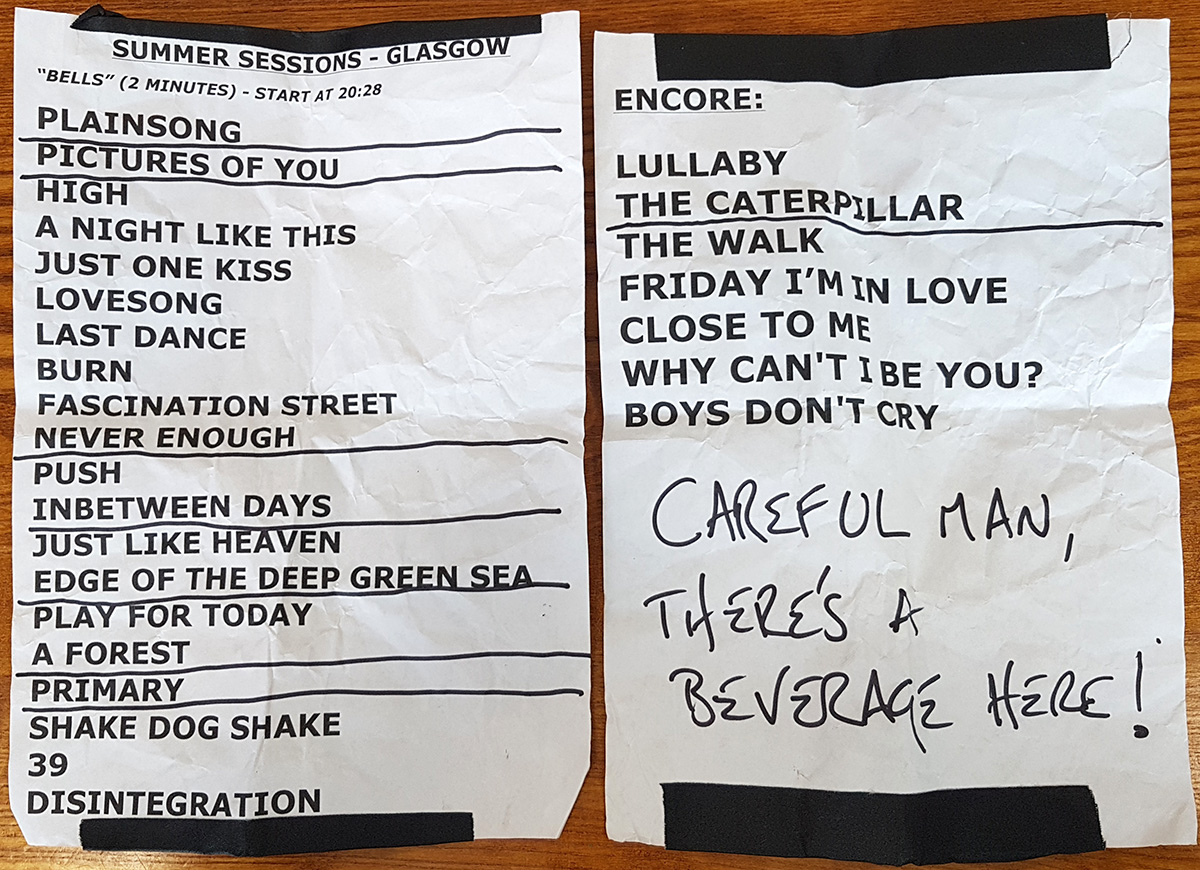 SUMMER SESSIONS - GLASGOW
"BELLS" (2 MINUTES) - START AT 20:28
PLAINSONG
PICTURES OF YOU
HIGH
A NIGHT LIKE THIS
JUST ONE KISS
LOVESONG
LAST DANCE
BURN
FASCINATION STREET
NEVER ENOUGH
PUSH
INBETWEEN DAYS
JUST LIKE HEAVEN
EDGE OF THE DEEP GREEN SEA
PLAY FOR TODAY
A FOREST
PRIMARY
SHAKE DOG SHAKE
39
DISINTEGRATION
ENCORE:
LULLABY
THE CATERPILLAR
THE WALK
FRIDAY I'M IN LOVE
CLOSE TO ME
WHY CAN'T I BE YOU?
BOYS DON'T CRY
CAREFUL MAN,
THERE'S A
BEVERAGE HERE!